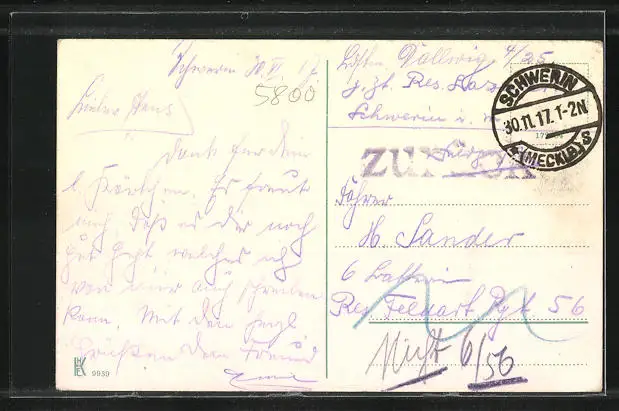 Schwerin 30. XI. 17.
5800
Lieber Hans
Dank für dein
l. Kärtchen. Es freut
mich daß es dir noch
gut geht welches ich
von mir auch schreiben
kann. Mit den herzl.
Grüßen dein Freund
9939
Dollwig 4/25
z. Zt. Res. Laz.
Schwerin i. M.
SCHWERIN
30.11.17.1-2N
*(MECKLB)S
ZURÜCK
Fahrer
H. Sander
6 Batterie
Res. Feldart Rgt. 56
Nicht 6/56